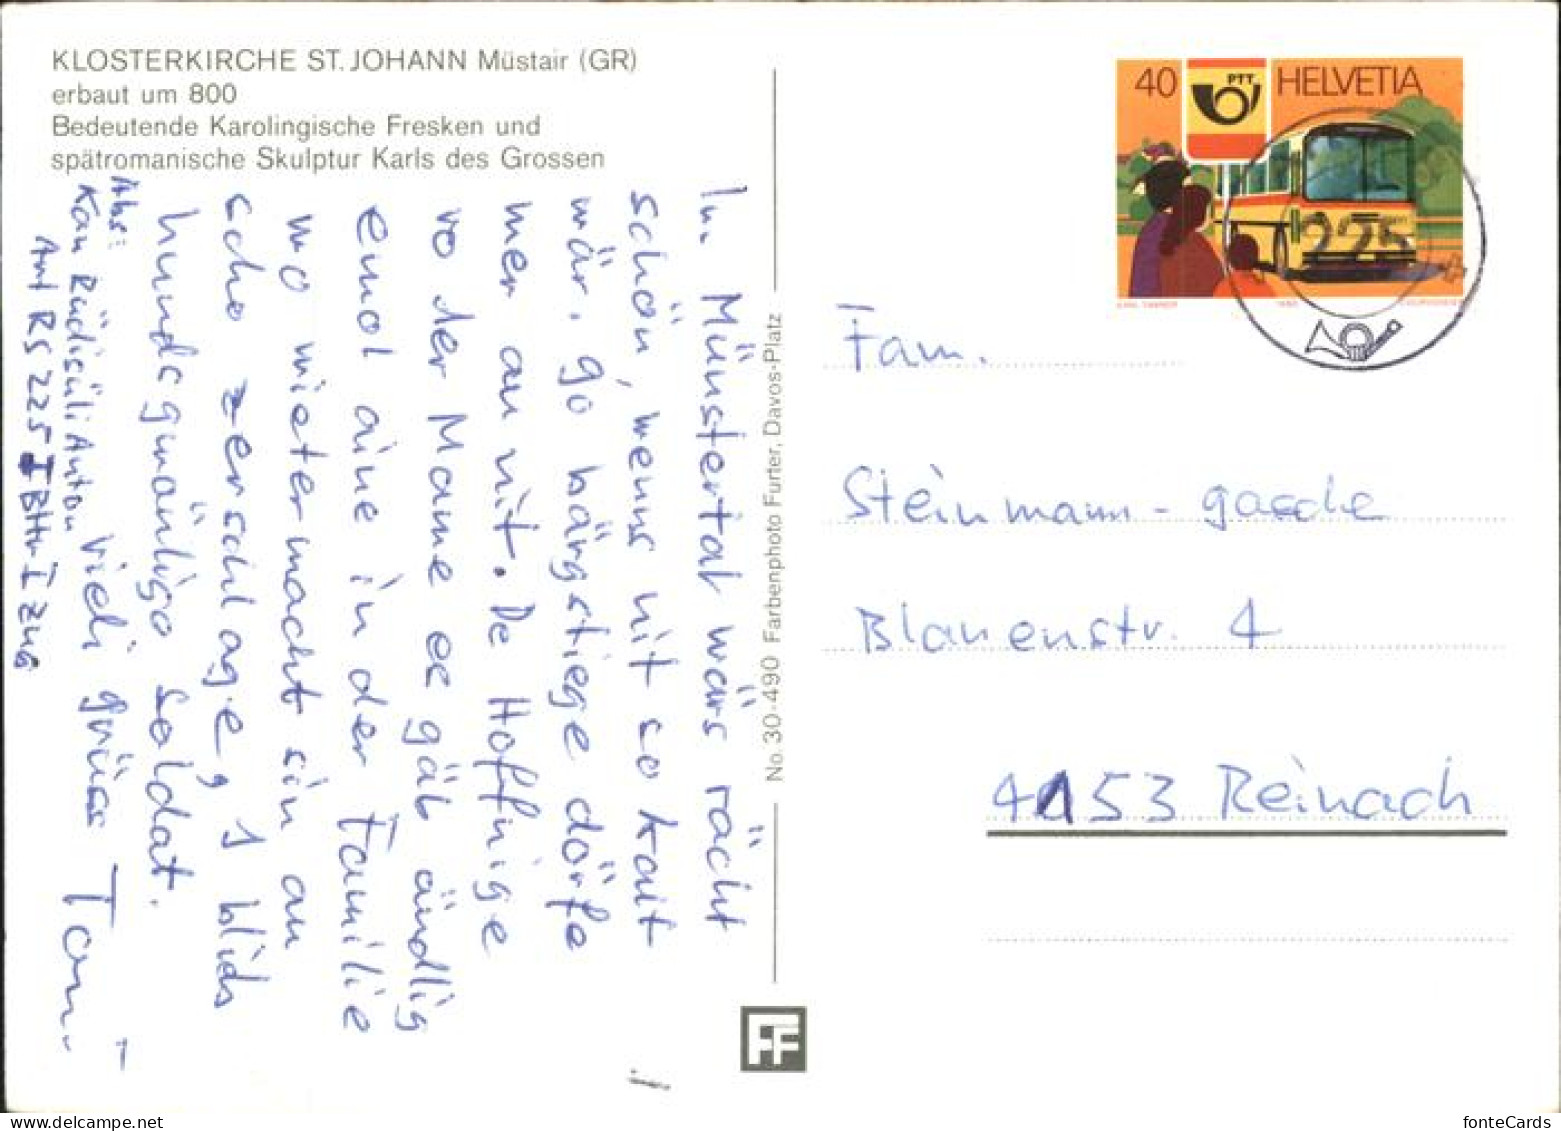 KLOSTERKIRCHE ST. JOHANN Müstair (GR)
erbaut um 800
Bedeutende Karolingische Fresken und
spätromanische Skulptur Karls des Grossen
In Münstertal wärs rächt
schön, wenns nit so kait
wär. go bärgstiege dörfe
mer au nit. De Hoffnige
vo der Mame es gäb ändlig
emol aine in der Familie
wo wieter macht sin au
scho zerschlage, 1 blids
hundsgwänligo Soldat.
vieli grüss Toni
Abs:
Kan Rüdisüli Anton
Amt RS 225 I BHr I Zug
No. 30-490 Farbenphoto Furter, Davos-Platz
FF
40
PTT
HELVETIA
1980
COURVOISIER
225
Fam.
Steinmann - gasche
Blauenstr. 4
4153 Reinach
fonteCards